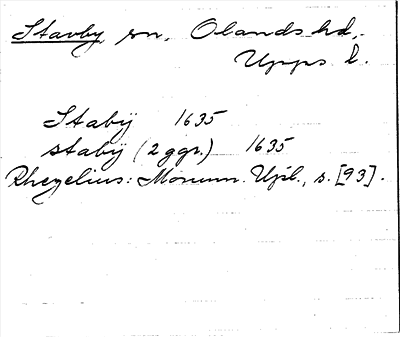 Stavby sn, Olands hd,
Upps. l.
Stabij 1635
stabij (2 ggr.) 1635
Rhezelius: Monum. Upl., s. [93].